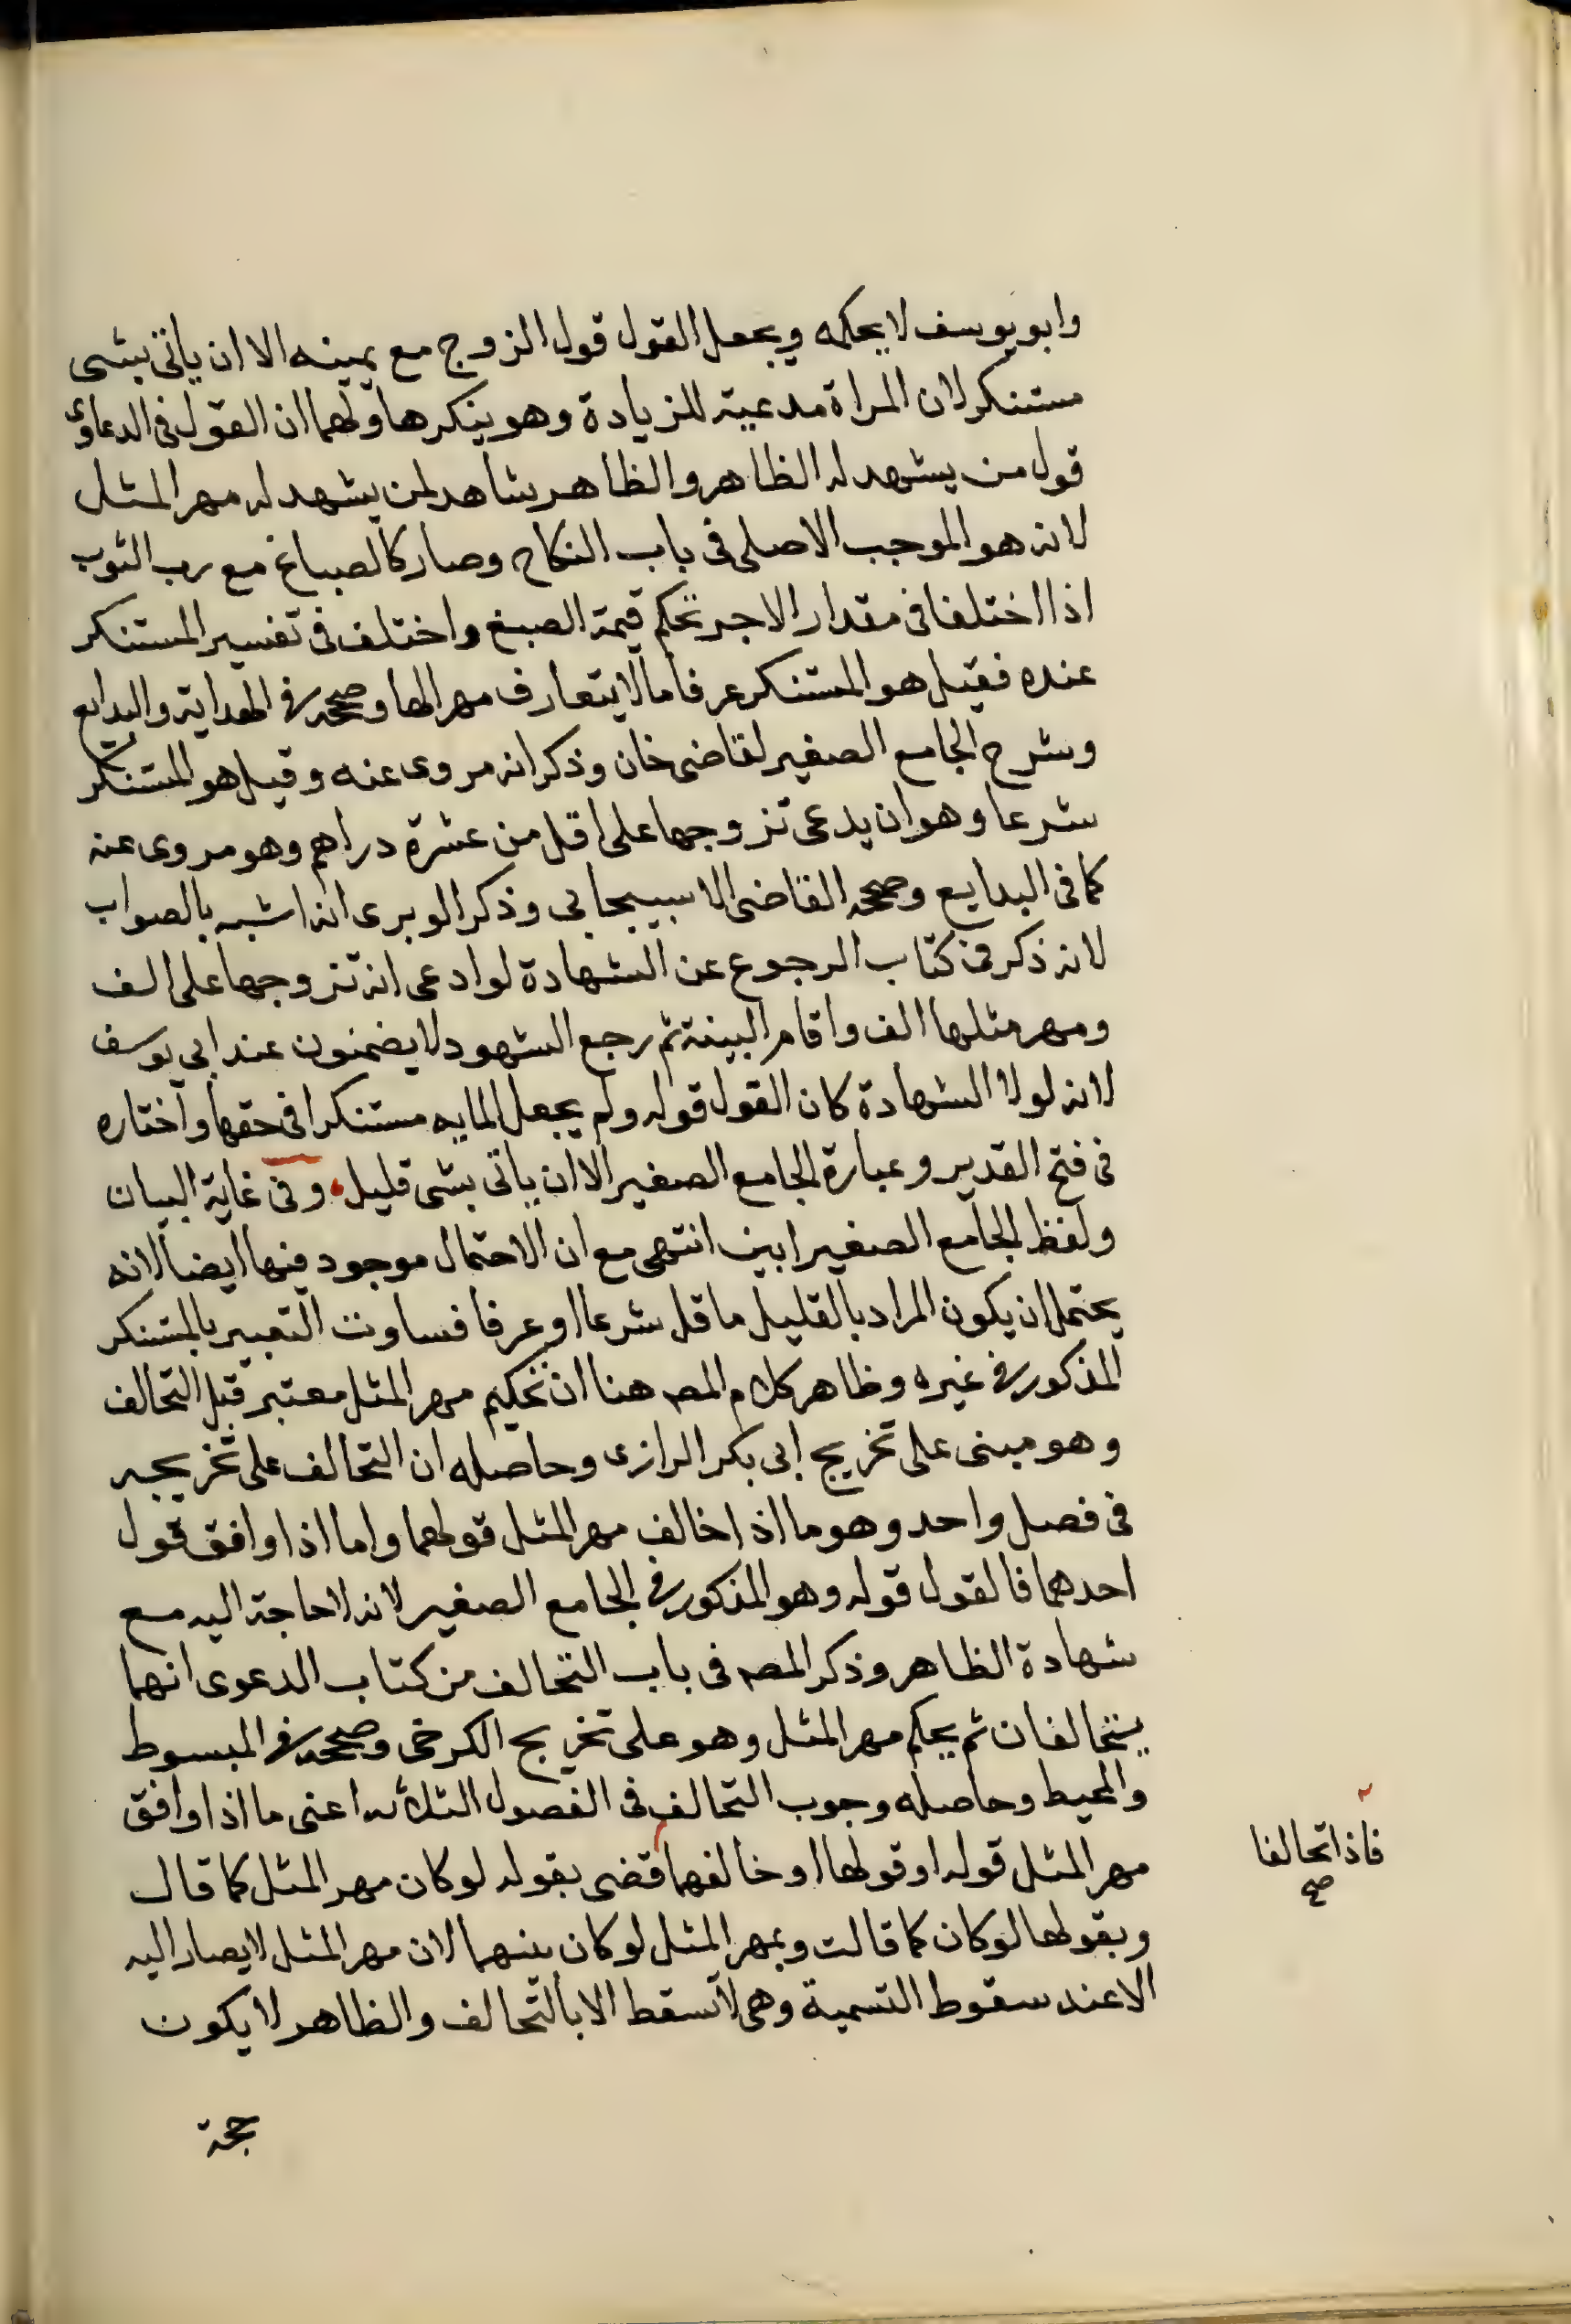 وابويوسف لايحكمه ويجعل القول قول الزوج مع يمينه الا ان ياتى بشى
مستنكر لان المراة مدعية للزيادة وهو ينكرها ولهما ان القول فى الدعاوى
قول من يشهد له الظاهر والظاهر شاهد لمن يشهد له مهر المثل
لانه هو الموجب الاصلى فى باب النكاح وصار كالصباغ مع رب الثوب
اذا اختلفا فى مقدار الاجر تحكم قيمة الصبغ واختلف فى تفسير المستنكر
عنده فقيل هو المستنكر عرفا مالايتعارف مهرا لها وصححه فى الهداية والبدايع
وشرح الجامع الصغير لقاضى خان وذكر انه مروى عنه وقيل هو المستنكر
شرعا وهو ان يدعى تزوجها على اقل من عشرة دراهم وهو مروى عنه
كما فى البدايع وصححه القاضى الاسبيجابى وذكر الوبرى انه اشبه بالصواب
لانه ذكر فى كتاب الرجوع عن الشهادة لو ادعى انه تزوجها على الف
ومهر مثلها الف واقام البينة ثم رجع الشهود لايضمنون عند ابى يوسف
لانه لولا الشهادة كان القول قوله ولم يجعل المايه مستنكرا فى حقها واختاره
فى فتح القدير وعبارة الجامع الصغير الا ان ياتى بشى قليل وفى غاية البيان
ولفظ الجامع الصغير ابين انتهى مع ان الاحتمال موجود فيها ايضا لانه
يحتمل ان يكون المراد بالقليل ما قل شرعا او عرفا فساوت التعبير بالمستنكر
المذكور فى غيره وظاهر كلام المصه هنا ان تحكيم مهر المثل معتبر قبل التحالف
وهو مبنى على تخريج ابى بكر الرازى وحاصله ان التحالف على تخريجه
فى فصل واحد وهو ما اذا خالف مهر المثل قولهما واما اذا وافق قول
احدهما فالقول قوله وهو المذكور فى الجامع الصغير لانه لاحاجة اليه مع
شهادة الظاهر وذكر المصه فى باب التحالف من كتاب الدعوى انهما
يتحالفان ثم يحكم مهر المثل وهو على تخريج الكرخى وصححه فى المبسوط
والمحيط وحاصله وجوب التحالف فى الفصول الثلاثه اعنى ما اذا وافق
مهر المثل قوله او قولها او خالفهما قضى بقوله لو كان مهر المثل كما قال
فاذا تحالفا
صح
وبقولها لو كان كما قالت وبمهر المثل لو كان بينهما لان مهر المثل لايصار اليه
الا عند سقوط التسمية وهى لا تسقط الا بالتحالف والظاهر لا يكون
حجة